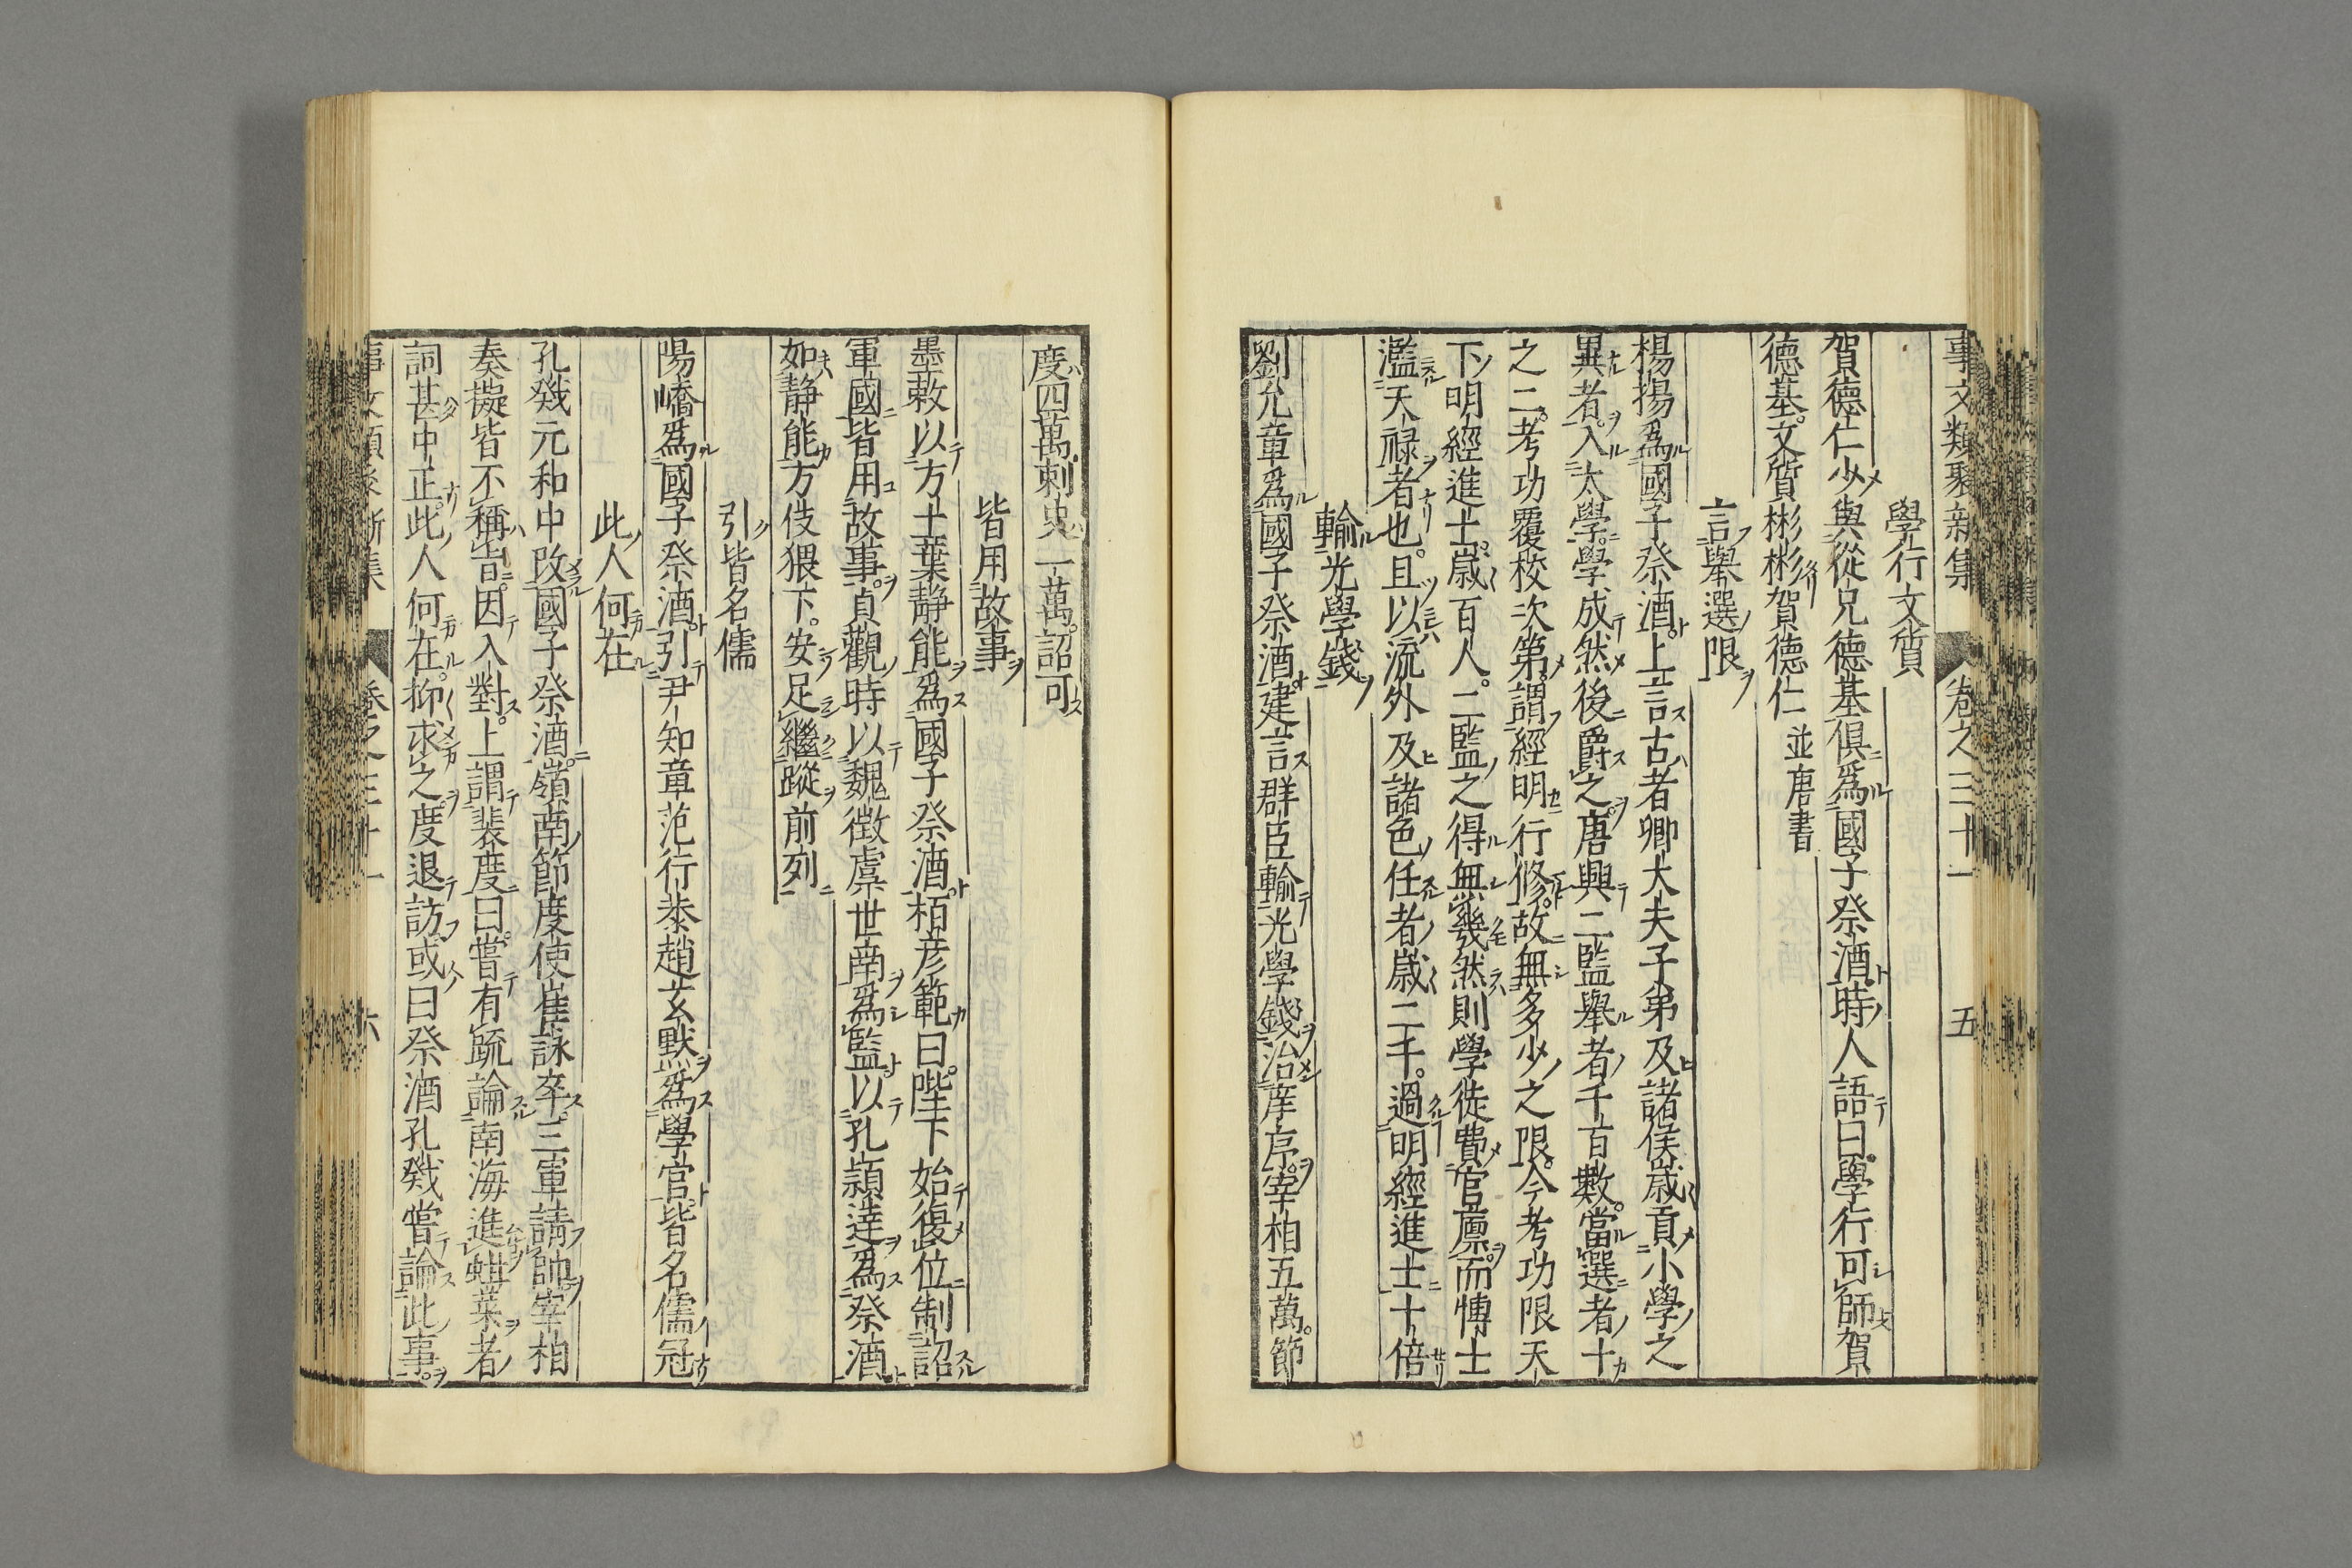 事文類聚新集 卷之三十一 五
學行文質
賀德仁少與從兄德基俱爲國子祭酒時人語曰學行可師賀
德基文質彬彬賀德仁 並唐書
言舉選限
楊揚爲國子祭酒上言古者卿大夫子弟及諸侯歲貢小學之
異者入太學學成然後爵之唐興二監舉者千百數當選者十
之二考功覆校次第謂經明行修故無多少之限今考功限天
下明經進士歲百人二監之得無幾然則學徒費官廩而博士
濫天祿者也且以流外及諸色任者歲二千過明經進士十倍
輸光學錢
劉允章爲國子祭酒建言群臣輸光學錢治庠序宰相五萬節
度四萬刺史一萬詔可
皆用故事
墨敕以方士葉靜能爲國子祭酒栢彥範曰陛下始復位制詔
軍國皆用故事貞觀時以魏徵虞世南爲監以孔頴逹爲祭酒
如靜能方伎猥下安足繼蹤前列
引皆名儒
陽嶠爲國子祭酒引尹知章范行恭趙玄默爲學官皆名儒冠
此人何在
孔戣元和中改國子祭酒嶺南節度使崔詠卒三軍請帥宰相
奏擬皆不稱旨因入對上謂裴度曰嘗有疏論南海進蚶菜者
詞甚中正此人何在抑求之度退訪或曰祭酒孔戣嘗論此事
事文類聚新集 卷之三十一 六